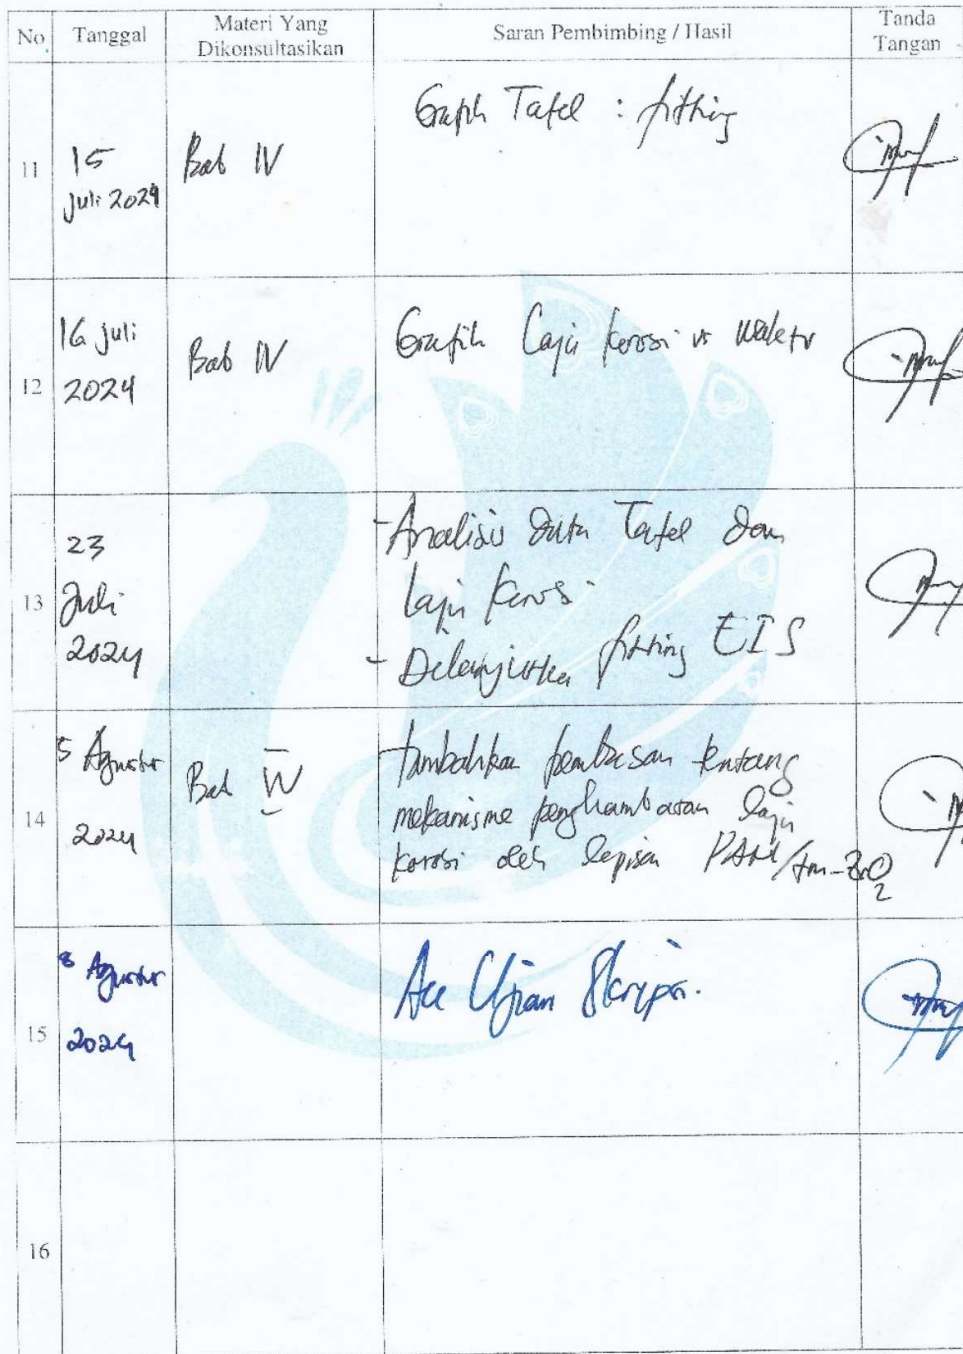 No Tanggal Materi Yang Dikonsultasikan Saran Pembimbing / Hasil Tanda Tangan
11 15 Juli 2024 Bab IV Grafik Tafel : fitting
12 16 Juli 2024 Bab IV Grafik Laju korosi vs waktu
13 23 Juli 2024
- Analisis data Tafel dan
laju korosi
- Dilanjutkan fitting EIS
14 5 Agustus 2024 Bab IV
tambahkan pembahasan tentang
mekanisme penghambatan laju
korosi oleh lapisan PANI/ -ZrO2
15 8 Agustus 2024 Acc Ujian Skripsi.
16